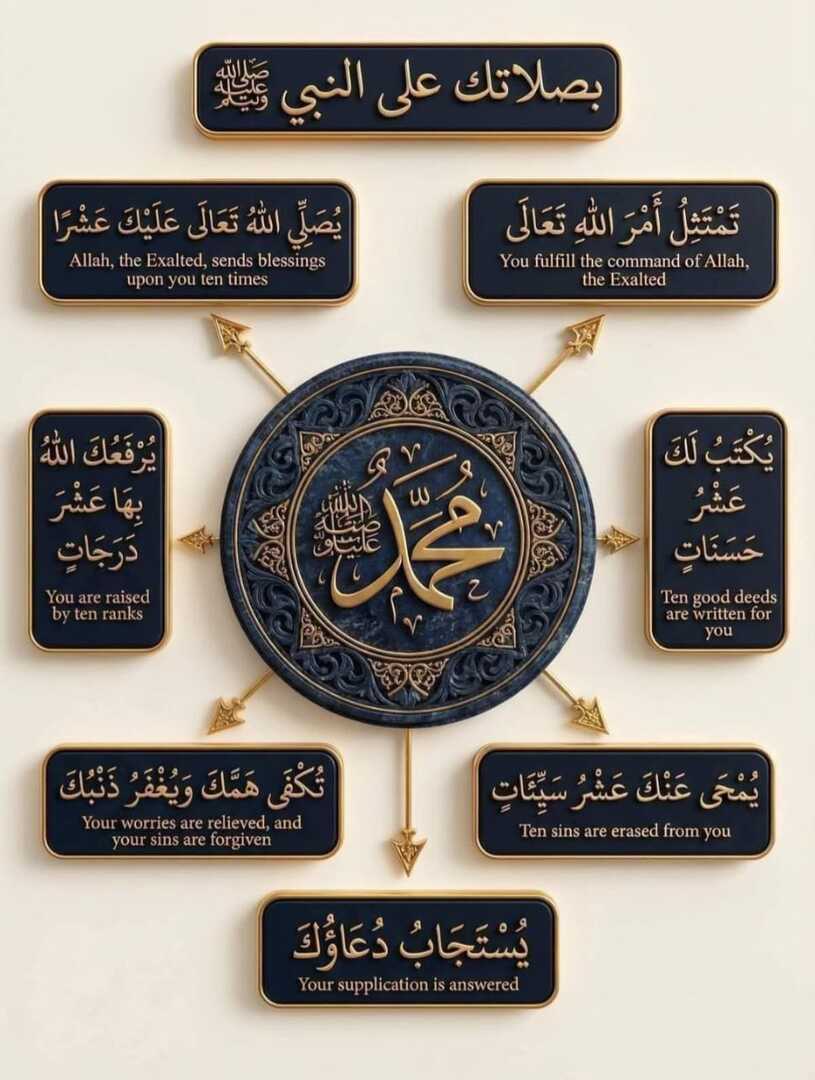 بصلاتك على النبي ﷺ
تَمْتَثِلُ أَمْرَ اللهِ تَعَالَى
You fulfill the command of Allah,
the Exalted
يُصَلِّي اللهُ تَعَالَى عَلَيْكَ عَشْرًا
Allah, the Exalted, sends blessings
upon you ten times
يُكْتَبُ لَكَ
عَشْرُ
حَسَنَاتٍ
Ten good deeds
are written for
you
مُحَمَّد ﷺ
يُرْفَعُكَ اللهُ
بِهَا عَشْرَ
دَرَجَاتٍ
You are raised
by ten ranks
يُمْحَى عَنْكَ عَشْرُ سَيِّئَاتٍ
Ten sins are erased from you
تُكْفَى هَمَّكَ وَيُغْفَرُ ذَنْبُكَ
Your worries are relieved, and
your sins are forgiven
يُسْتَجَابُ دُعَاؤُكَ
Your supplication is answered